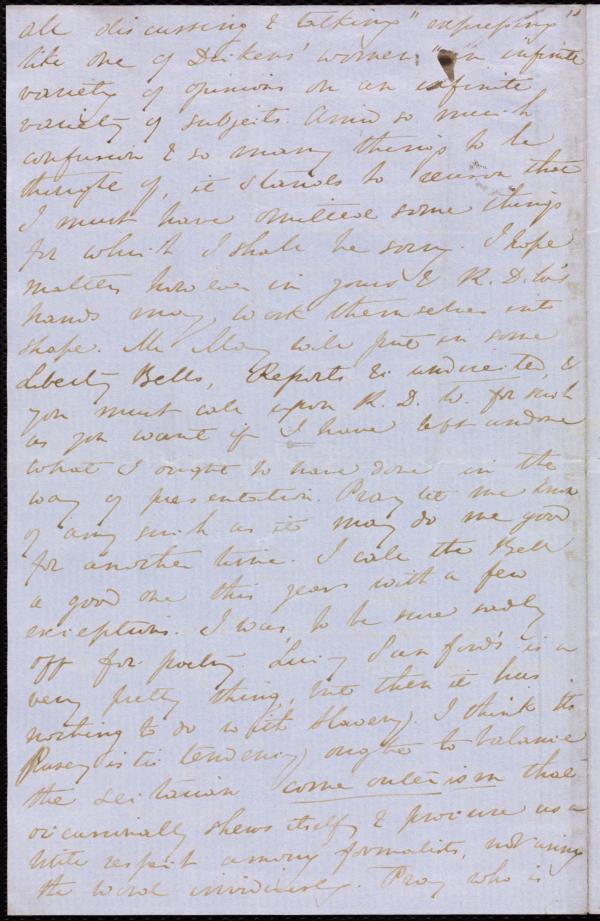 all discussing & talking "expressing
like one of Dickens' women "an infinite
variety of opinions on an infinite
variety of subjects. Amid so much
confusion & so many things to be
thought of, it stands to reason that
I must have omitted some things
for which I shall be sorry. I hope
matters however in yours & R. D. W's
hands may work themselves into
shape. Mr May will put in some
Liberty Bells, Reports &c undirected, &
you must call upon R. D. W. for such
as you want if I have left undone
what I ought to have done in the
way of presentation. Pray let me know
of any such as it may do me good
for another time. I call the Bell
a good one this year with a few
exceptions. I was to be sure sadly
off for poetry. Lucy Sanford's is a
very pretty thing, but then it has
nothing to do with Slavery. I think its
Puseyistic tendency ought to balance
the sectarian come outerism that
occasionally shews itself & procure us a
little respect among formalists, not using
the word invidiously. Pray who is